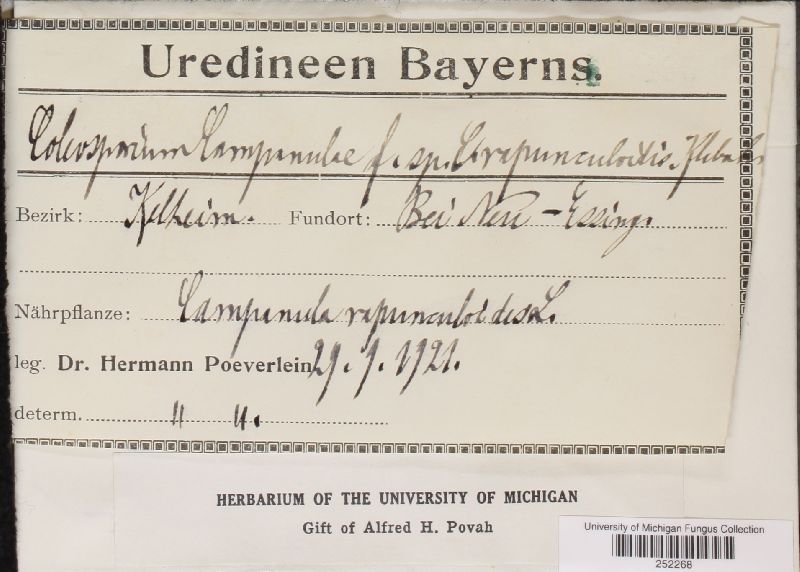 Uredineen Bayerns.
Coleosporium Campanulae f. sp. C. rapunculoidis. Klebahn
Bezirk: Kelheim. Fundort: Bei Neu-Essing.
Nährpflanze: Campanula rapunculoides L.
leg. Dr. Hermann Poeverlein 29. 9. 1921.
determ. " ".
HERBARIUM OF THE UNIVERSITY OF MICHIGAN
Gift of Alfred H. Povah
University of Michigan Fungus Collection
252268